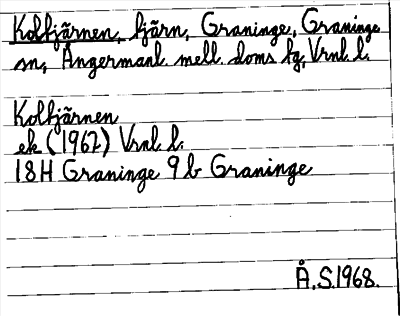 Koltjärnen, tjärn, Graninge, Graninge
sn, Ångermanl mell. doms tg, Vrnl. l.
Koltjärnen
ek (1962) Vrnl l.
18H Graninge 9b Graninge
Å.S.1968.